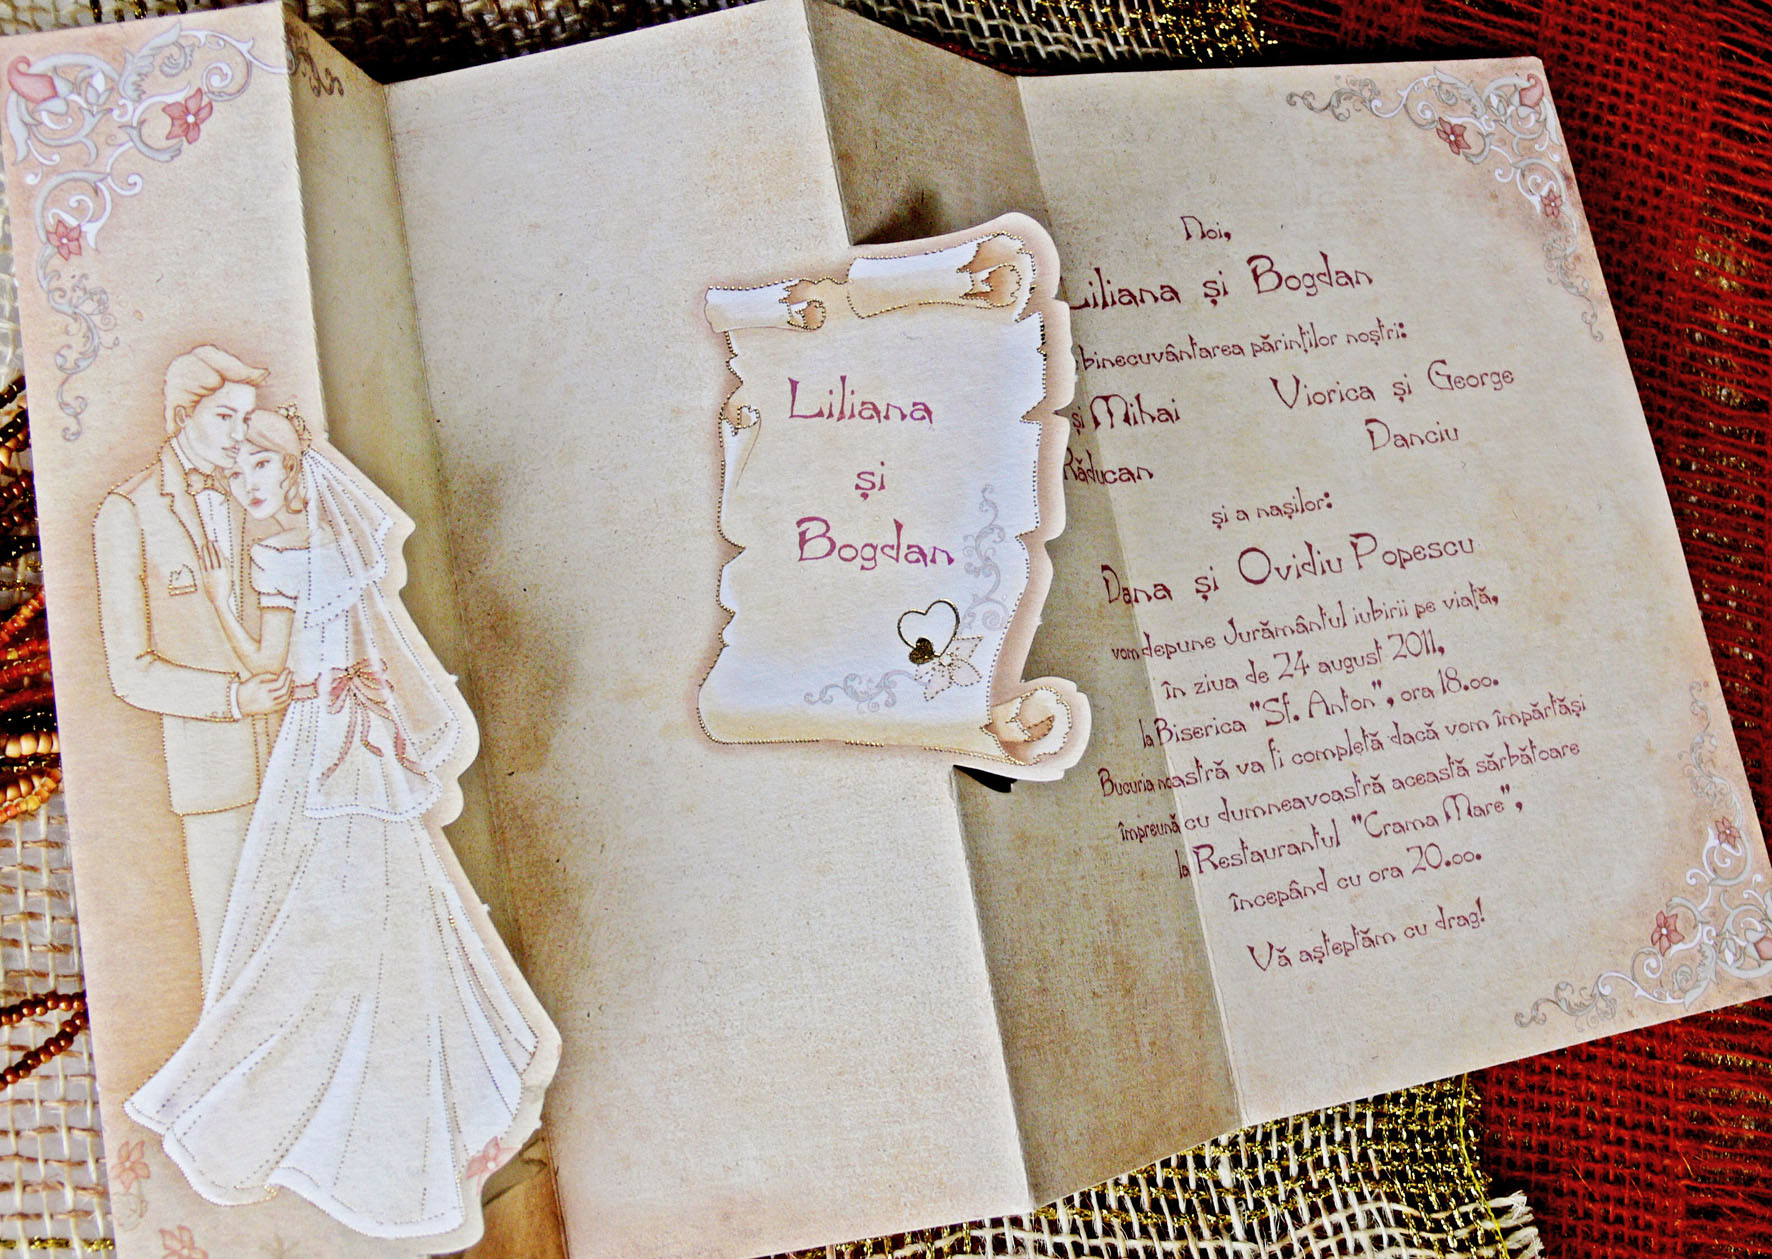 Liliana
și
Bogdan
Noi,
Liliana și Bogdan
binecuvântarea părinților noștri:
și Mihai Viorica și George
Răducan Danciu
și a nașilor:
Dana și Ovidiu Popescu
vom depune Jurământul iubirii pe viață,
în ziua de 24 august 2011,
la Biserica "Sf. Anton", ora 18.oo.
Bucuria noastră va fi completă dacă vom împărtăși
împreună cu dumneavoastră această sărbătoare
la Restaurantul "Crama Mare",
începând cu ora 20.oo.
Vă așteptăm cu drag!